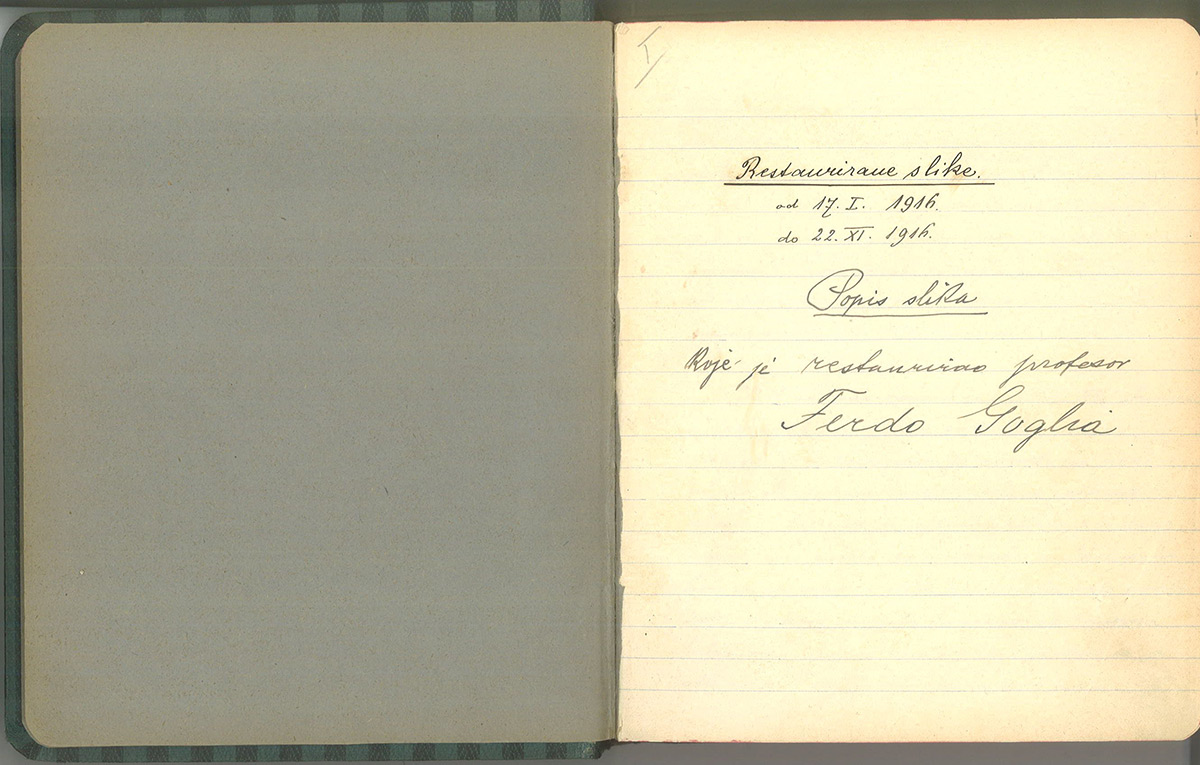 I
Restaurirane slike.
od 17. I. 1916.
do 22. XI. 1916.
Popis slika
koje je restaurirao profesor
Ferdo Goglia